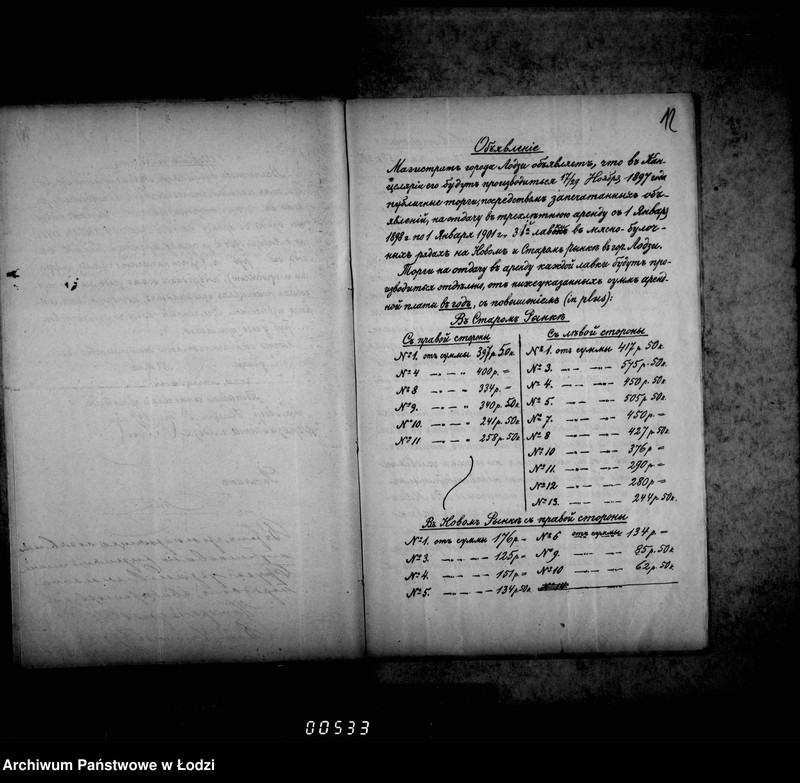 12
Объявленіе
Магистратъ города Лодзи объявляетъ, что въ Кан-
целяріи его будутъ производиться 17/29 Ноября 1897 года
публичные торги, посредствомъ запечатанныхъ объ-
явленій, на отдачу въ трехлѣтнюю аренду съ 1 Января
1898 г. по 1 Января 1901 г., лавокъ въ мясно-булоч-
ныхъ рядахъ на Новомъ и Старомъ Рынкѣ въ гор. Лодзи.
Торги на отдачу въ аренду каждой лавки будутъ про-
изводиться отдѣльно, отъ нижеуказанныхъ суммъ аренд-
ной платы въ годъ, съ повышеніемъ (in plus):
Въ Старомъ Рынкѣ
Съ правой стороны
№ 1. отъ суммы 397 р. 50 к.
№ 4 — „ — „ 400 р. =
№ 8 — „ — „ 334 р. =
№ 9. — „ — „ 340 р. 50 к.
№ 10. — „ — „ 241 р. 50 к.
№ 11 — „ — „ 258 р. 50 к.
Съ лѣвой стороны
№ 1. отъ суммы 417 р. 50 к.
№ 3. — „ — 575 р. 50 к.
№ 4. — „ — 450 р. 50 к.
№ 5. — „ — 505 р. 50 к.
№ 7. — „ — 450 р. =
№ 8 — „ — 427 р. 50 к.
№ 10 — „ — 376 р. =
№ 11. — „ — 290 р. =
№ 12 — „ — 280 р. =
№ 13. — „ — 244 р. 50 к.
Въ Новомъ Рынкѣ съ правой стороны
№ 1. отъ суммы 176 р. =
№ 3. — „ — 125 р. =
№ 4. — „ — 151 р. =
№ 5. — „ — 134 р. 50 к.
№ 6 отъ суммы 134 р. =
№ 9. — „ — 85 р. 50 к.
№ 10 — „ — 62 р. 50 к.
00533
Archiwum Państwowe w Łodzi